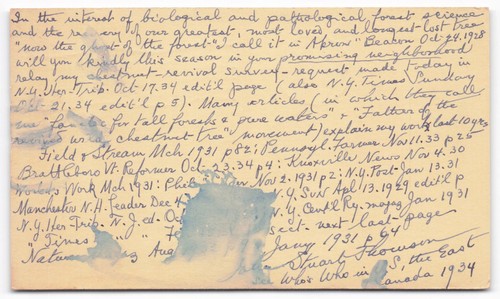 In the interest of biological and pathological forest science
and the recovery of our greatest, most loved and longest-lost tree
"now the ghost of the forest" I call it in Akron Beacon Oct 24.1928
will you kindly this season in your promising neighborhood
relay my chestnut-revival survey-request made today in
N.Y. Her-Trib. Oct 17.34 edit'l page (also N.Y. Times Sunday
Oct 21.34 edit'l p 5). Many articles (in which they call
me "fanatic for tall forests & pure waters" & "Father of the
revived chestnut tree" movement) explain my work last 10 yrs
Field & Stream Mch 1931 p 82; Pennsyl. Farmer Nov 11.33 p 25
Brattleboro Vt. Reformer Oct 23.34 p 4; Knoxville News Nov 4.30
World's Work Mch 1931; Nov 2.1931 p 2; N.Y. Post Jan 13.31
Manchester N.H. Leader Dec 4 N.Y. Sun Apl 13.1929 edit'l p
N.Y. Her. Trib. N.J. ed. Oc N.Y. Centl Ry. magaz Jan 1931
"Times " " sect. next last page
Nature Mag Aug Jany 1931 p 64
Stuart Thomson
Who's Who in the East
Canada 1934